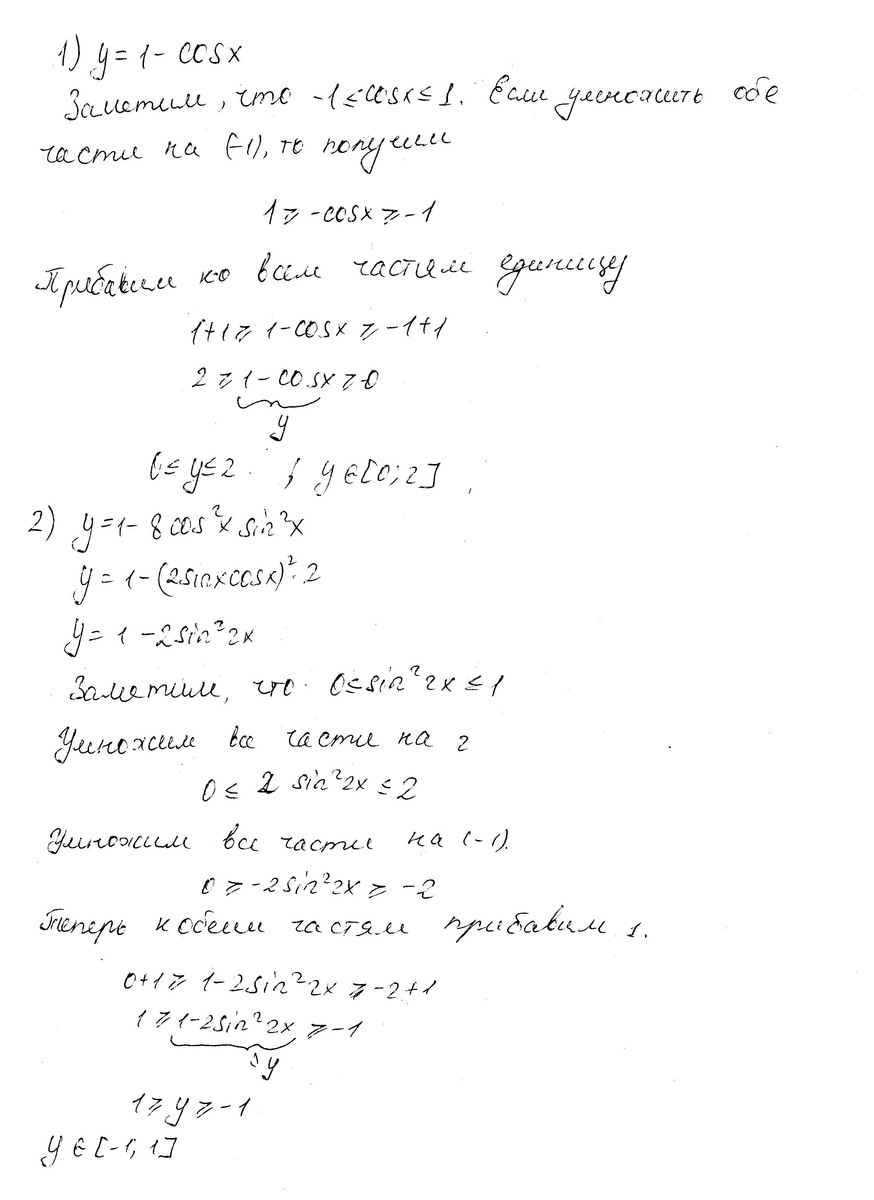 1) y = 1 - cosx
Заметим, что -1 ≤ cosx ≤ 1. Если умножить обе
части на (-1), то получим
1 ≥ -cosx ≥ -1
Прибавим ко всем частям единицу
1+1 ≥ 1-cosx ≥ -1+1
2 ≥ 1-cosx ≥ 0
y
0 ≤ y ≤ 2 ; y ∈ [0; 2]
2) y = 1 - 8cos²x sin²x
y = 1 - (2sinxcosx)²·2
y = 1 - 2sin²2x
Заметим, что 0 ≤ sin²2x ≤ 1
Умножим все части на 2
0 ≤ 2 sin²2x ≤ 2
Умножим все части на (-1).
0 ≥ -2sin²2x ≥ -2
Теперь к обеим частям прибавим 1.
0+1 ≥ 1-2sin²2x ≥ -2+1
1 ≥ 1-2sin²2x ≥ -1
y
1 ≥ y ≥ -1
y ∈ [-1, 1]